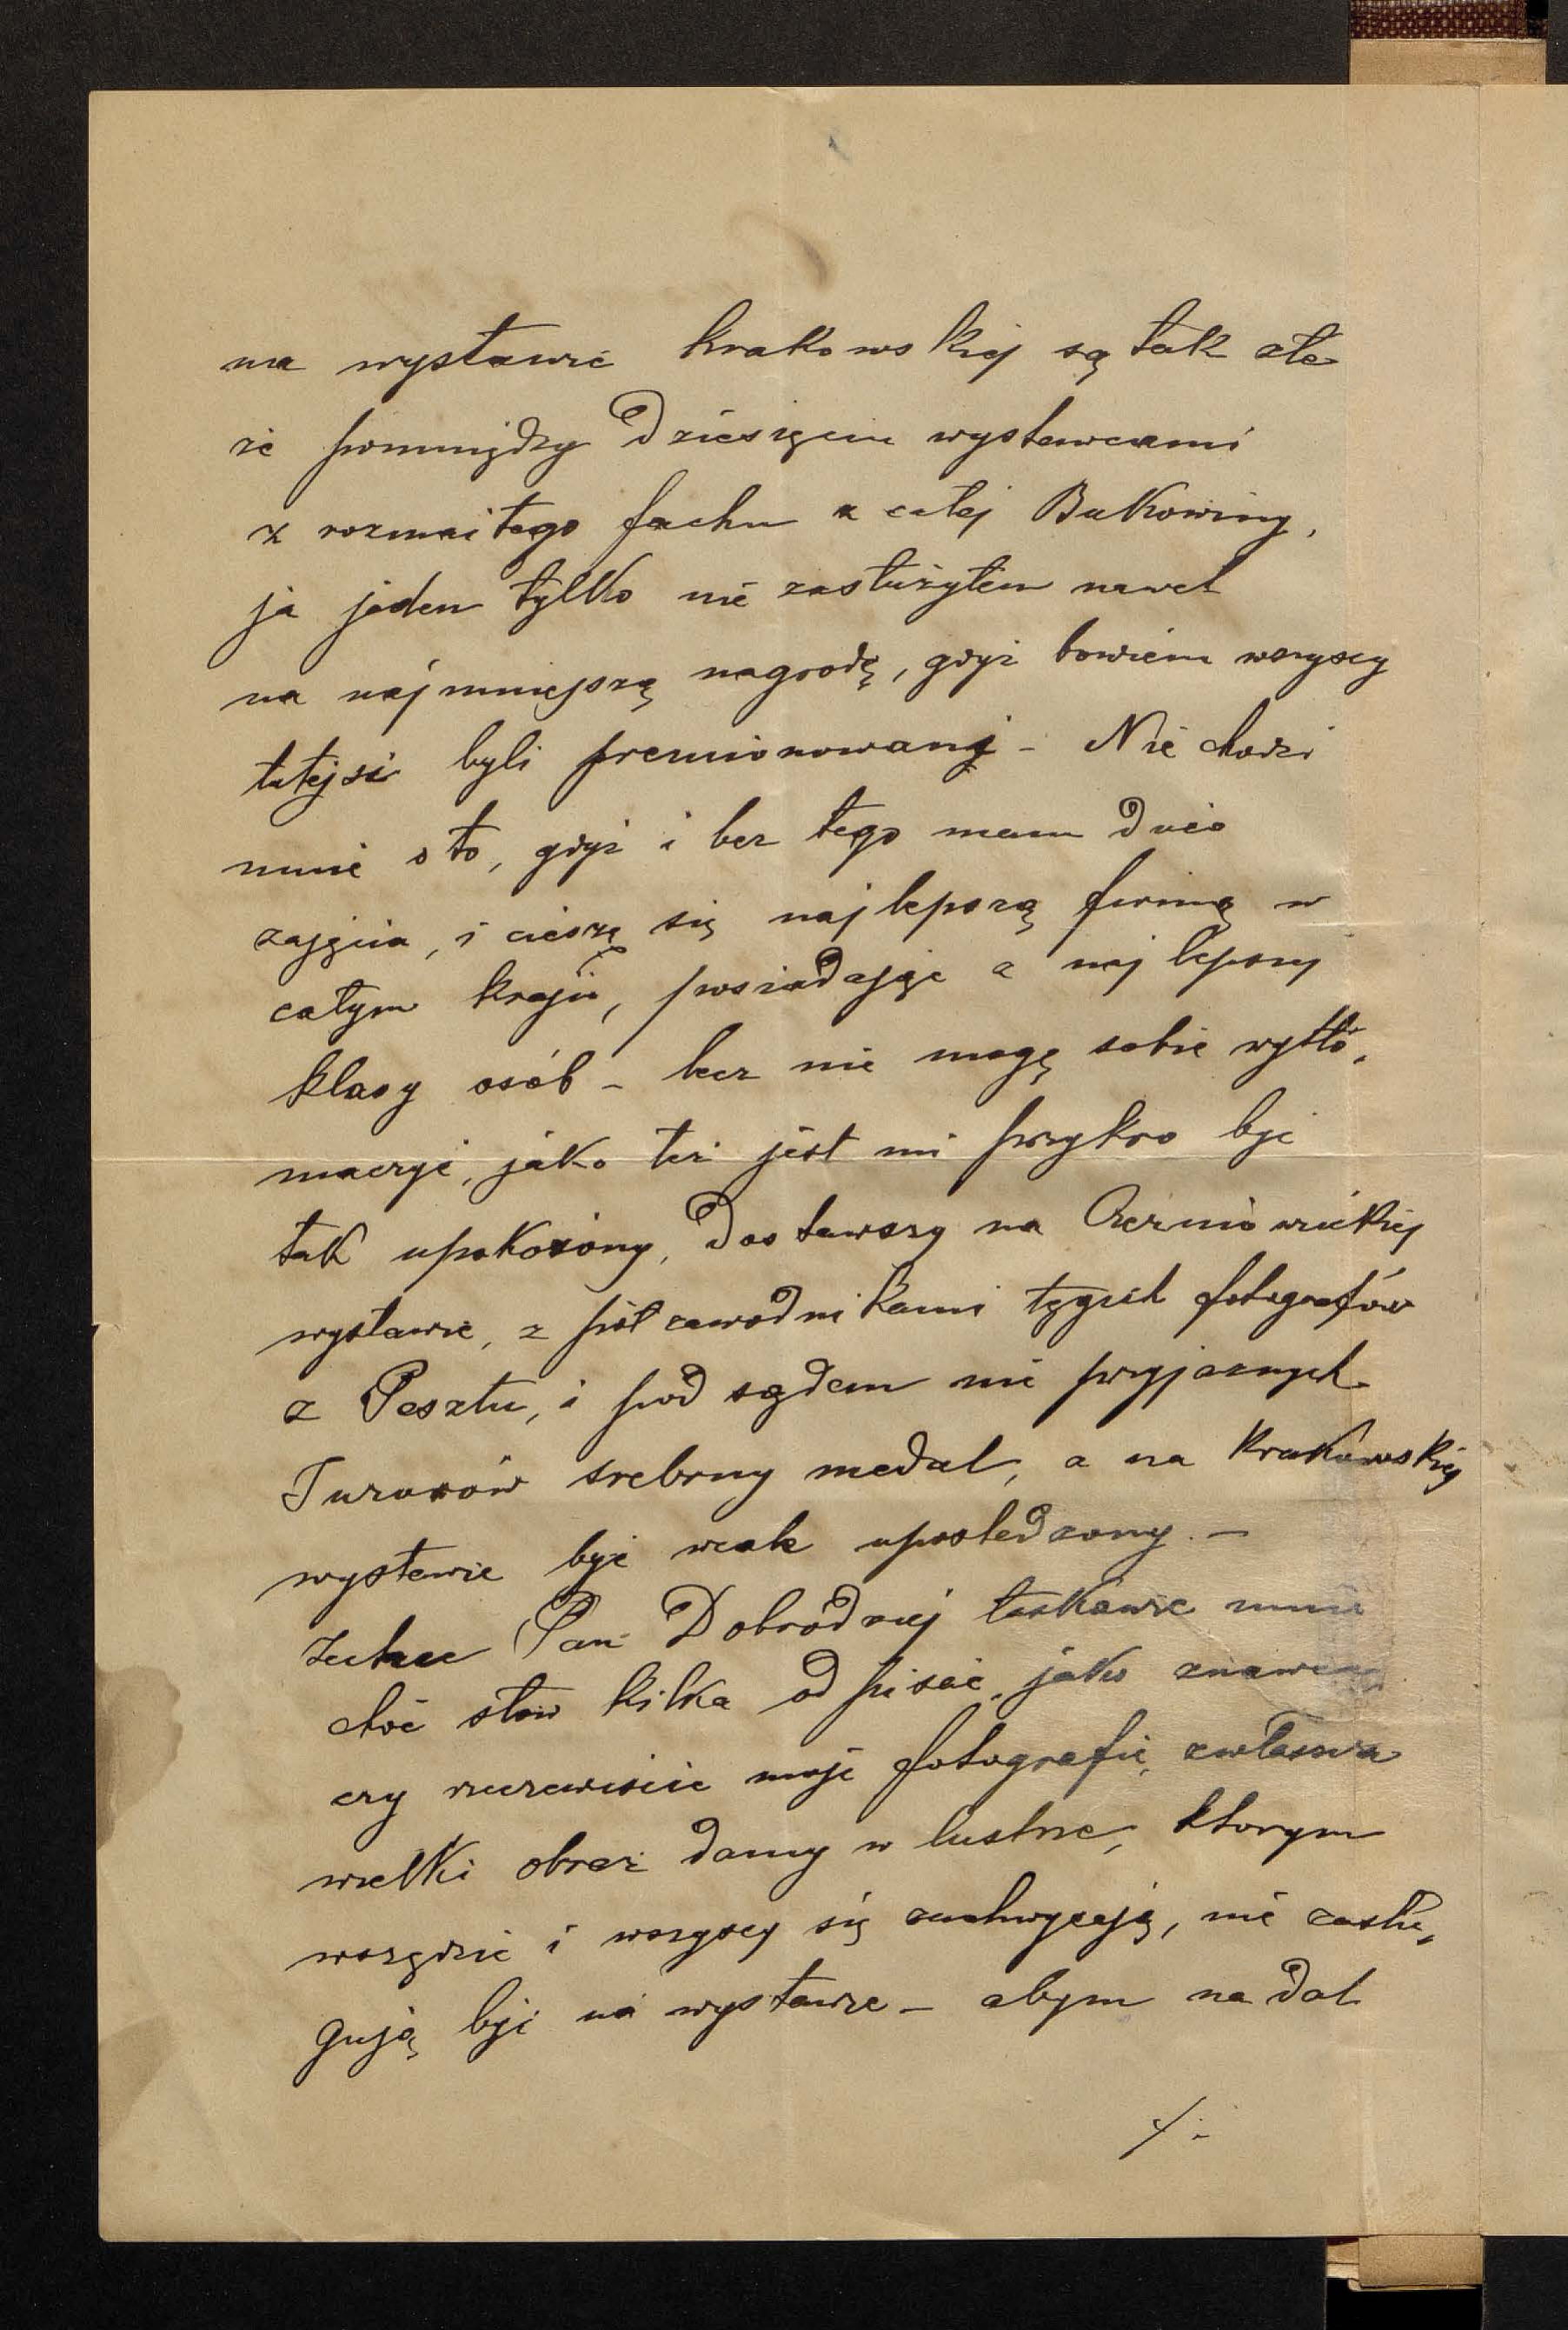 na wystawie krakowskiej są tak złe
że pomiędzy Dziesięciu wystawcami
z rozmaitego fachu z całej Bukowiny,
ja jeden tylko nie zasłużyłem nawet
na najmniejszą nagrodę, gdyż bowiem wszyscy
tutejsi byli premionowany - Nie chodzi
mnie o to, gdyż i bez tego mam Dużo
zajęcia, i cieszę się najlepszą firmą w
całym kraju, posiadając z najlepszy
klasy osób - lecz nie mogę sobie wytłó„
maczyć, jako też jest mi przykro być
tak upokożony, Dostawszy na Czerniowieckiej
wystawie, z współzawodnikami tęgich fotografów
z Pesztu, i pod sądem nie przyjaznych
Jurorów srebrny medal, a na Krakowskiej
wystawie być wcale upośledzony. -
Zechce Pan Dobródziej łaskawie mnie
choć słow kilka odpisać, jako znawca
czy rzeczewiście moje fotografie, zwłaszcza
wielki obraz damy w lustrze, ktorym
wszędzie i wszyscy się zachwycają, nie zasłu„
gują być na wystawie - abym nadal
./.